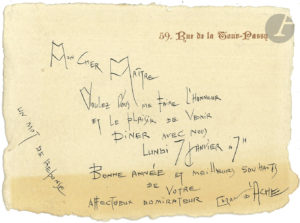 59. Rue de la Tour-Passy
Mon cher Maître
Voulez vous me faire l'honneur
et le plaisir de venir
dîner avec nous
lundi 7 janvier à 7h
Bonne année et meilleurs souhaits
de votre
affectueux admirateur
Caran d'Ache
un mot de réponse